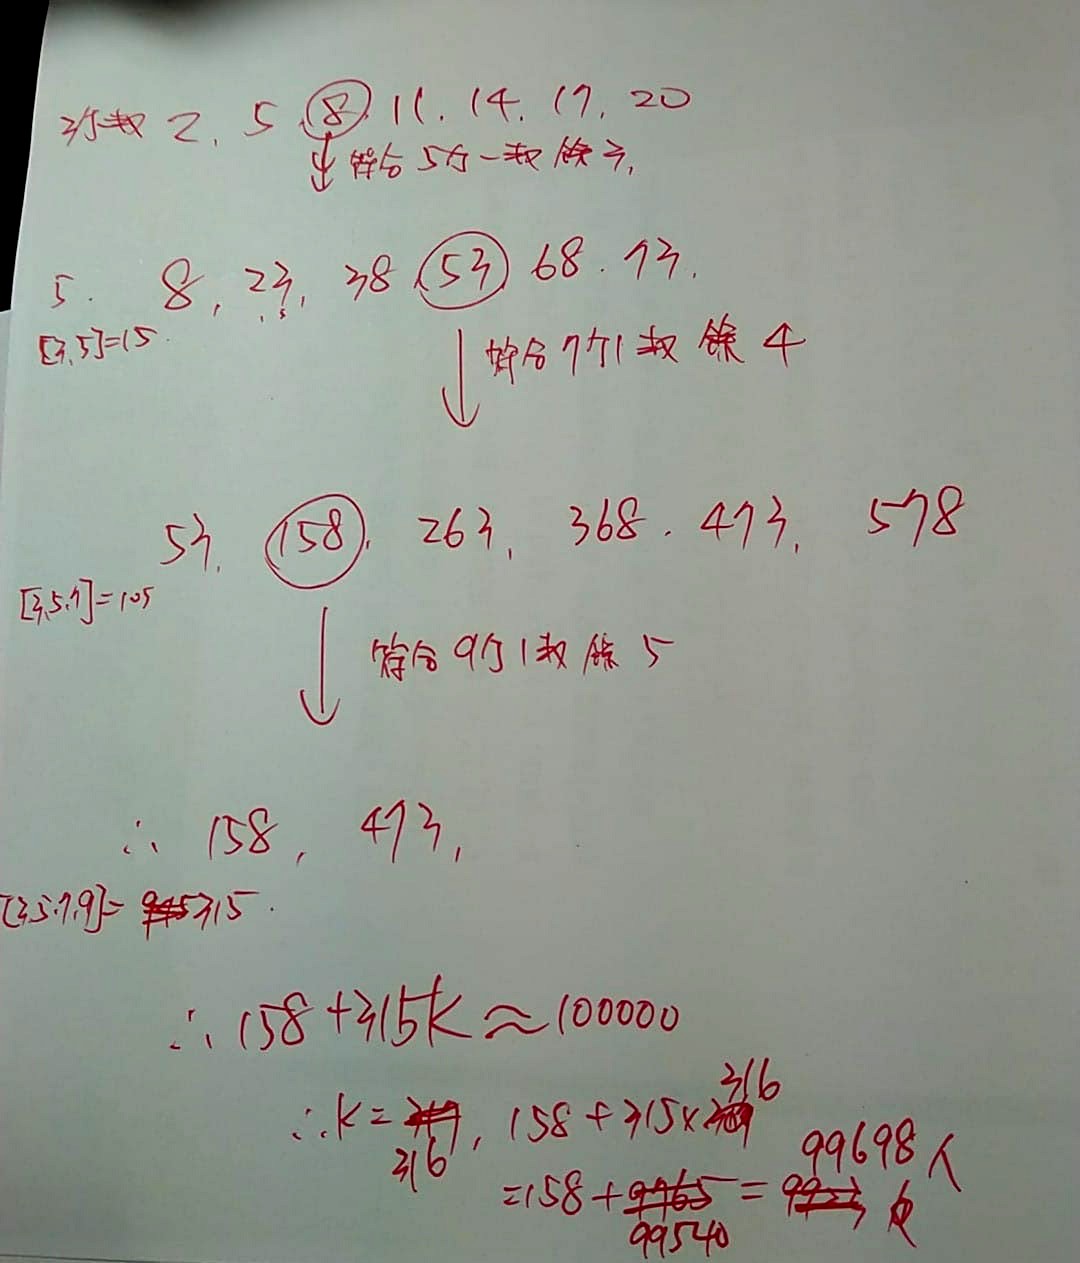 3餘數 2, 5, 8, 11, 14, 17, 20
符合 5個一數 餘 3,
5. 8, 23, 38, 53, 68. 73.
[3,5]=15
符合 7個1數 餘 4
53, 158, 263, 368. 473, 578
[3,5,7]=105
符合 9個1數 餘 5
∴ 158, 473,
[3,5,7,9]= 315.
∴ 158+315K≈100000
∴ K= 316, 158+315×316
=158+99540=99698人